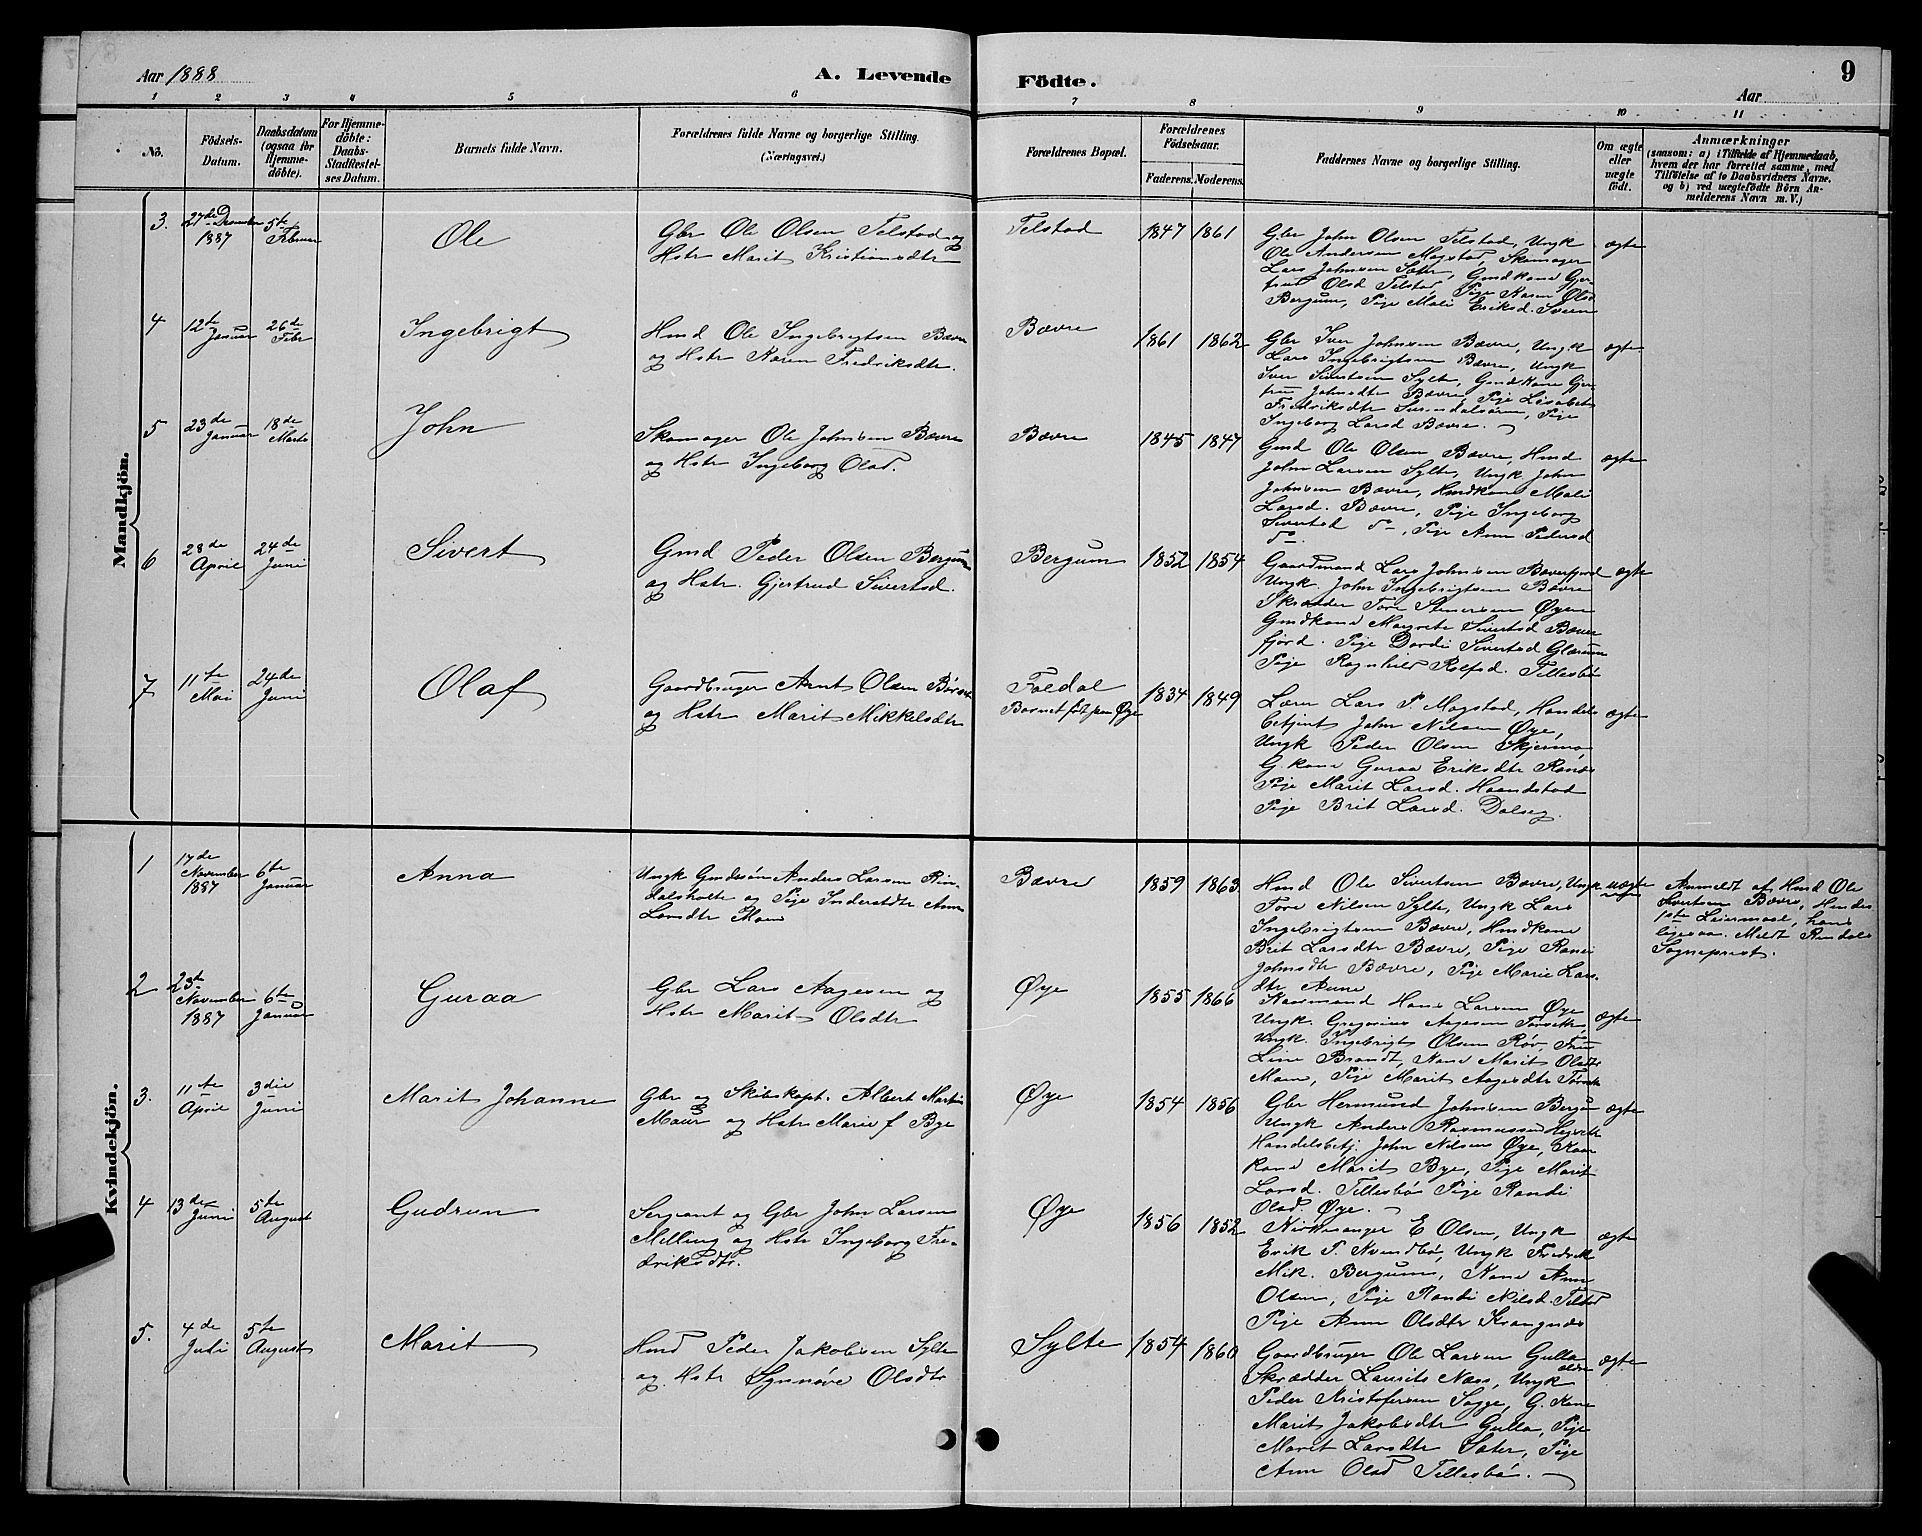 Aar 1888
A. Levende
Födte.
9
Aar
1 2 3 4 5 6 7 8 9 10 11
No.
Födsels-
Datum.
Daabsdatum
(ogsaa for
Hjemme-
döbte).
For Hjemme-
döbte:
Daabs-
Stadfæstel-
ses Datum.
Barnets fulde Navn.
Forældrenes fulde Navne og borgerlige Stilling.
(Næringsvei.)
Forældrenes Bopæl.
Forældrenes
Födselsaar.
Faderens. Moderens.
Faddernes Navne og borgerlige Stilling.
Om ægte
eller
uægte
født.
Anmærkninger
(saasom: a) i Tilfælde af Hjemmedaab,
hvem der har forrettet samme, med
Tilföielse af to Daabsvidners Navne,
og b) ved uægtefödte Börn An-
melderens Navn m. V.)
Mandkjön.
3.
27de December
1887
5te
Februar
Ole
Gbr Ole Olsen Telstad og
Hstr Marit Kristiansdtr
Telstad
1847 1861
Gbr John Olsen Telstad, Ungk
Ole Andersen Magstad, Skomager
Lars Johnsen Sæter, Gmdkone Gjer-
trud Olsd Telstad, Pige Karen Olsd
Bergum, Pige Mali Eriksd. Sveen
ægte
4
12te
Januar
26de
Febr
Ingebrigt
Hmd Ole Ingebrigtsen Bævre
og Hstr Karen Fredriksdtr.
Bævre
1861 1862
Gbr Iver Johnsen Bævre, Ungk
Lars Ingebrigtsen Bævre, Ungk
Iver Sivertsen Sylte, Gmdkone Gjer-
tru Johnsdtr Bævre, Pige Lisabet
Fredriksdtr Surendalsøren, Pige
Ingeborg Larsd Bævre.
ægte
5
23de
Januar
18de
Marts
John
Skomager Ole Johnsen Bævre
og Hstr Ingeborg Olsd.
Bævre
1845 1847
Gmd Ole Olsen Bævre, Hmd
John Larsen Sylte, Ungk John
Johnsen Bævre, Hmdkone Mali
Larsd. Bævre, Pige Ingeborg
Sivertsd do, Pige Ann Pedersd
do.
ægte
6
28de
April
24de
Juni
Sivert
Gmd Peder Olsen Bergum
og Hstr. Gjertrud Sivertsd.
Bergum
1852 1854
Gaardmand Lars Johnsen Bæverfjord
Ungk. John Ingebrigtsen Bævre
Skrædder Tore Stenersen Øyen
Gmdkone Margrete Sivertsd Bæver
fjord. Pige Dordi Sivertsd Glærum
Pige Ragnhild Rolfsd. Tellesbø
ægte
7
11te
Mai
24de
Juni
Olaf
Gaardbruger Arnt Olsen Børset
og Hstr Marit Mikkelsdtr
Foldal
Barnet født paa Øye
1834 1849
Lærer Lars P Magstad, Handels
betjent John Nilsen Øye,
Ungk Peder Olsen Skjermo,
G. kone Guraa Eriksdtr Ranæs
Pige Marit Larsd. Haandstad
Pige Brit Larsd. Dalseg.
ægte
Kvindekjön.
1
17de
November
1887
6te
Januar
Anna
Ungk Gmdsøn Anders Larsen Rin-
dalsholte og Pige Inderstdtr Ann
Larsdtr Moen
Bævre
1859 1863
Hmd Ole Sivertsen Bævre, Ungk
Tore Nilsen Sylte, Ungk Lars
Ingebrigtsen Bævre, Hmdkone
Brit Larsdtr Bævre, Pige Randi
Johnsdtr Bævre, Pige Marie Lars-
dtr Aune
uægte
Anmeldt af Hmd Ole
Sivertsen Bævre, Hendes
1ste Leiermaal, hans
ligesaa. Meldt Rindals
Sogneprest.
2
23de
November
1887
6te
Januar
Guraa
Gbr Lars Aagesen og
Hstr Marit Olsdtr
Øye
1855 1866
Kaarmand Hans Larsen Øye
Ungk. Gregorius Aagesen Torvik
Ungk. Ingebrigt Olsen Røv, Fru
Line Brandt, Kone Marit Olsdtr
Moen, Pige Marit Aagesdtr Torvik
ægte
3.
11te
April
3die
Juni
Marit Johanne
Gbr og Skibskapt. Albert Martin
Maur og Hstr Marie f Bye
Øye
1854 1856
Gbr Hermund Johnsen Bergum
Ungk Anders Rasmussen
Handelsbetj. John Nilsen Øye, Kaar
kone Marit Bye, Pige Marit
Larsd. Tellesbø Pige Randi
Olsd. Øye.
ægte
4
13de
Juni
5te
August
Gudrun
Sergeant og Gbr John Larsen
Melling og Hstr Ingeborg Fre-
driksdtr.
Øye
1856 1852
Kirkesanger E Olsen, Ungk
Erik P. Kvendbø, Ungk Fredrik
Mik. Bergum, Kone Ann
Olsen, Pige Randi Nilsd. Telstad
Pige Ann Olsdtr Krangnæs
ægte
5.
4de
Juli
5te
August
Marit
Hmd Peder Jakobsen Sylte
og Hstr Synnøve Olsdtr
Sylte
1854 1860
Gaardbruger Ole Larsen Gulla
Skrædder Laurits Næss, Ungk
Peder Kristofersen Sogge, G. Kone
Marit Jakobsdtr Gulla, Pige
Marit Larsdtr Sæter, Pige
Ann Olsd Tellesbø.
ægte